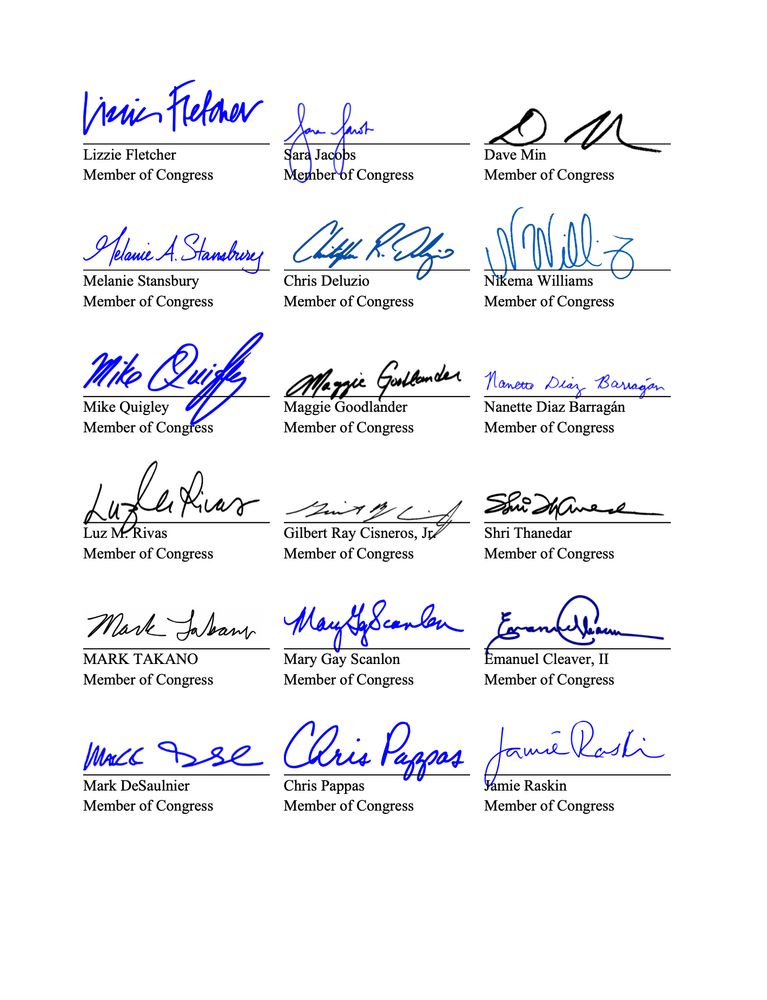 Lizzie Fletcher Sara Jacobs D M
Lizzie Fletcher Sara Jacobs Dave Min
Member of Congress Member of Congress Member of Congress
Melanie A. Stansbury Christopher R. Deluzio N Williams
Melanie Stansbury Chris Deluzio Nikema Williams
Member of Congress Member of Congress Member of Congress
Mike Quigley Maggie Goodlander Nanette Diaz Barragán
Mike Quigley Maggie Goodlander Nanette Diaz Barragán
Member of Congress Member of Congress Member of Congress
Luz M Rivas
Luz M. Rivas Gilbert Ray Cisneros, Jr. Shri Thanedar
Member of Congress Member of Congress Member of Congress
Mark Takano Mary Gay Scanlon Emanuel Cleaver
MARK TAKANO Mary Gay Scanlon Emanuel Cleaver, II
Member of Congress Member of Congress Member of Congress
Mark Chris Pappas Jamie Raskin
Mark DeSaulnier Chris Pappas Jamie Raskin
Member of Congress Member of Congress Member of Congress